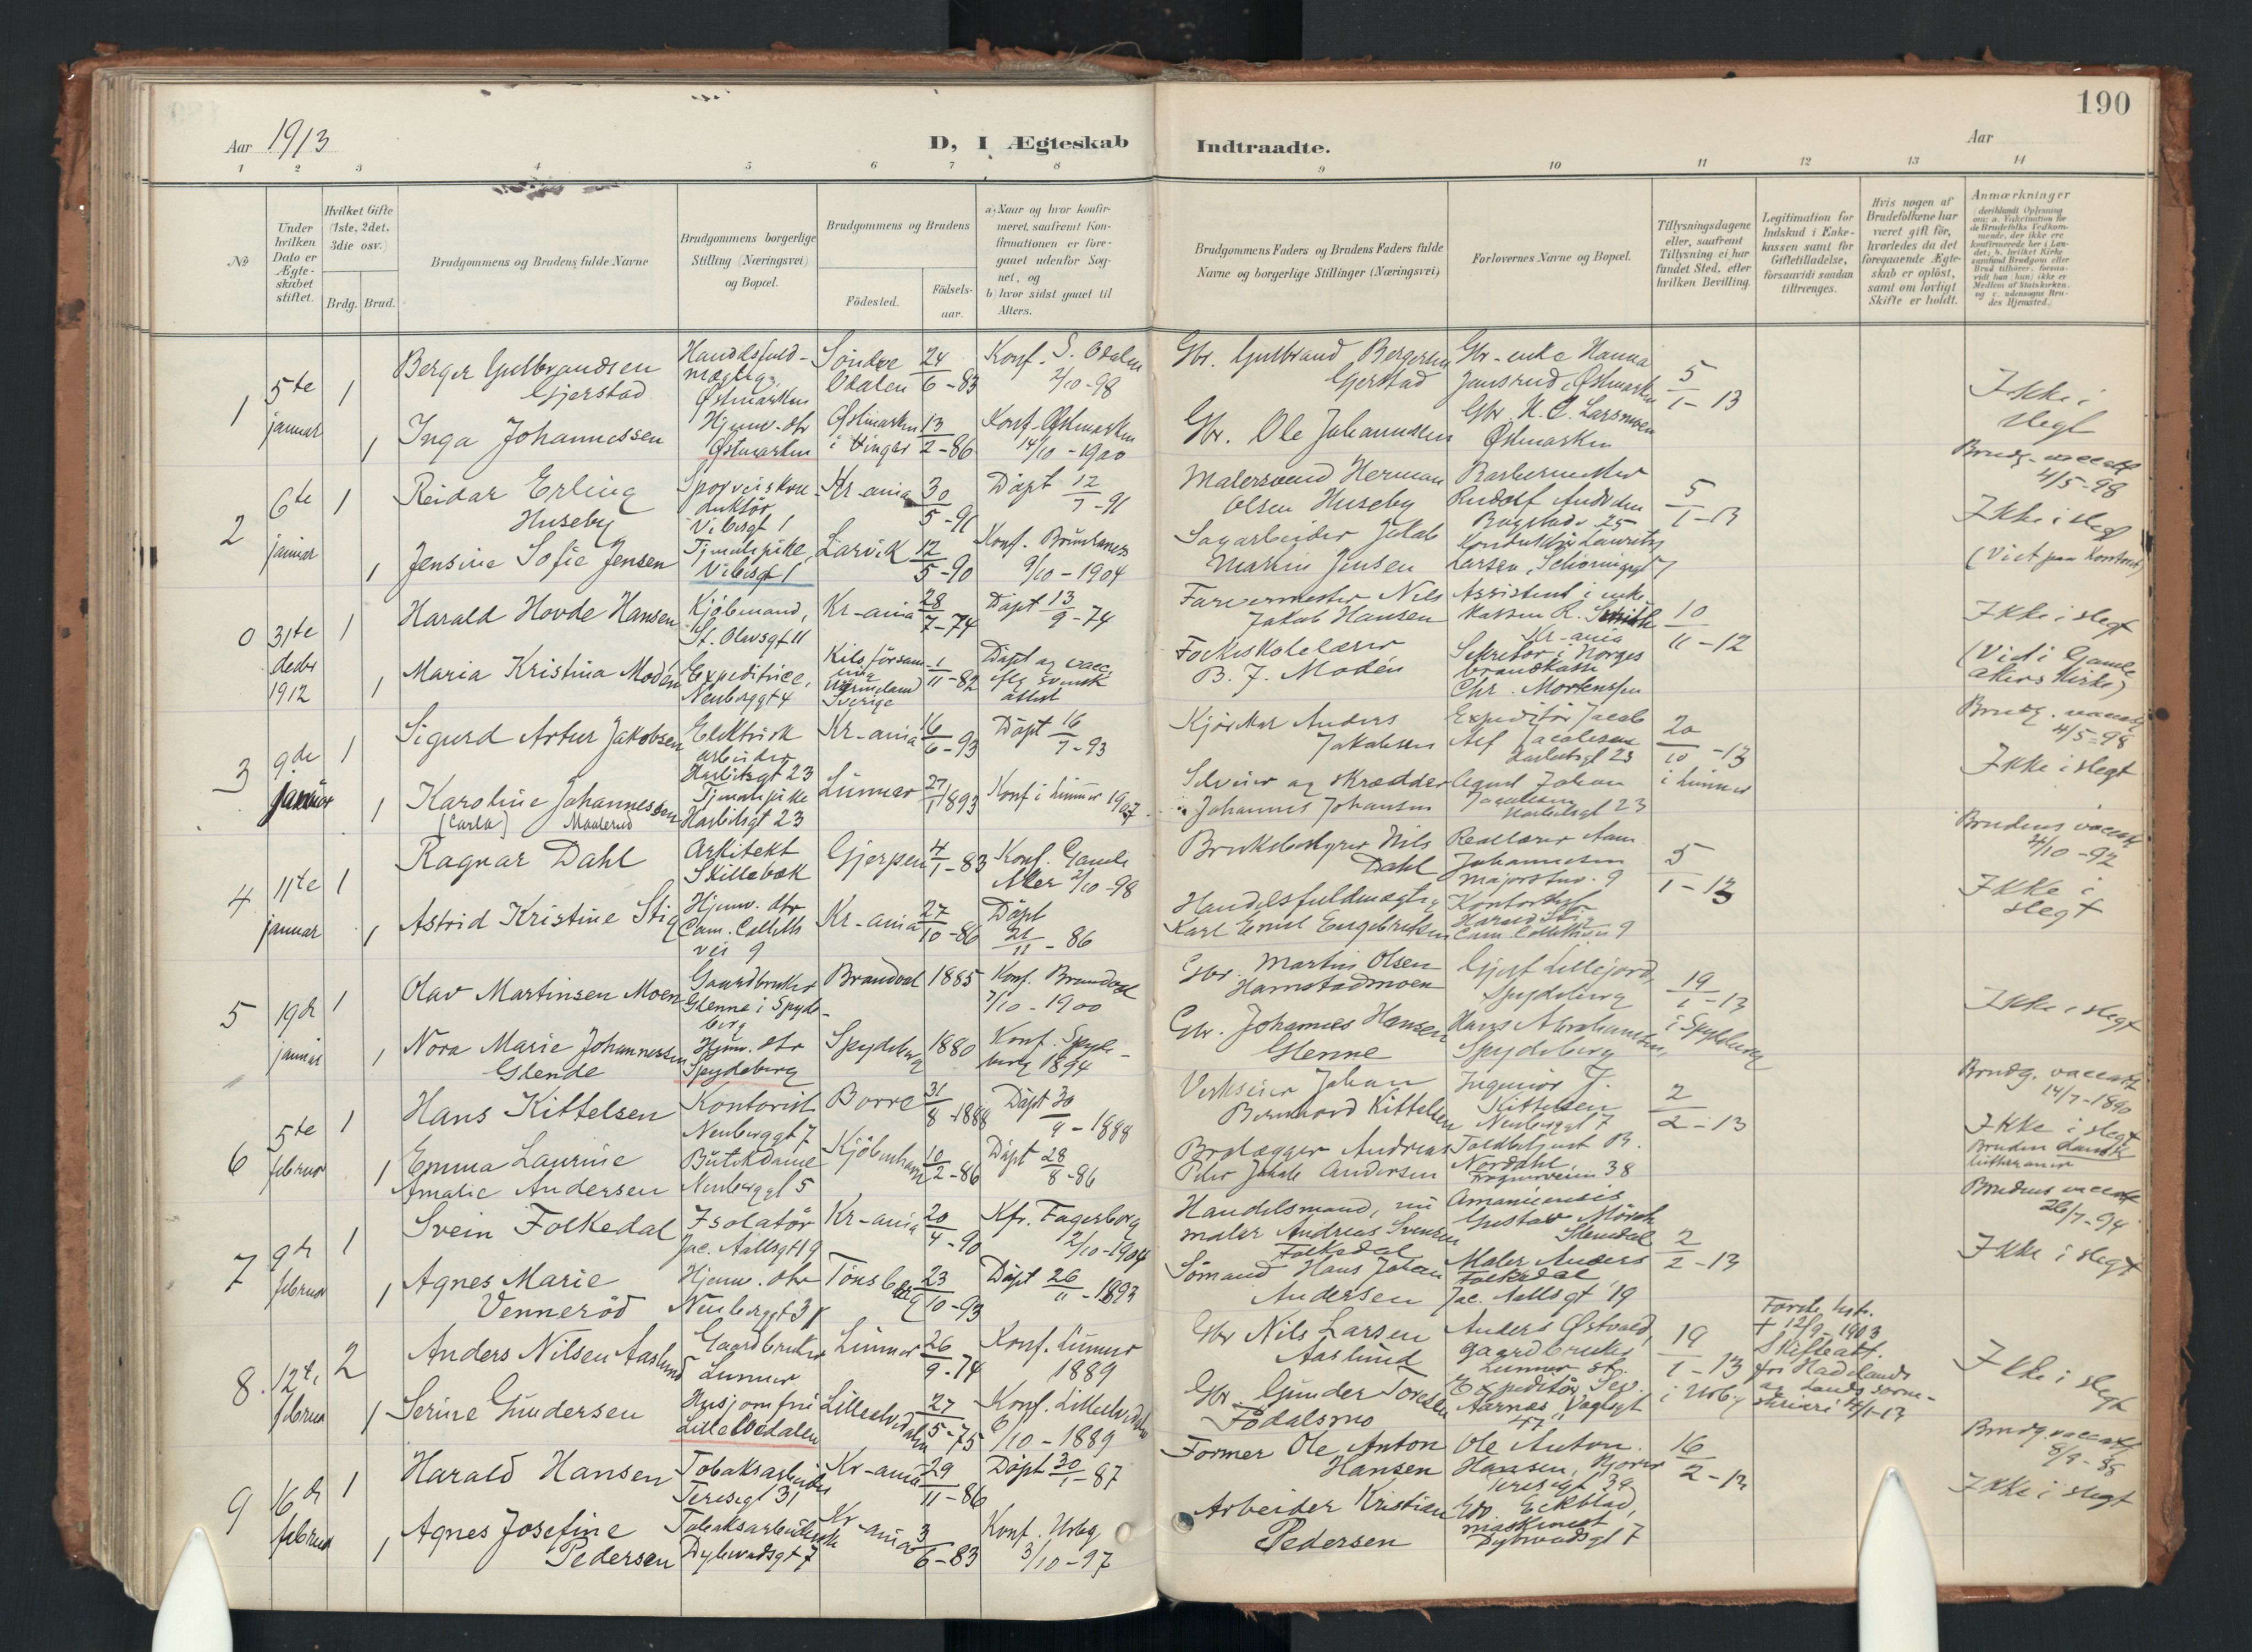 190
Aar 1913
D, I Ægteskab
Indtraadte.
Aar
1 2 3 4 5 6 7 8 9 10 11 12 13 14
No
Under
hvilken
Dato er
Ægte-
skabet
stiftet.
Hvilket Gifte
(1ste, 2det,
3die osv.)
Brdg. Brud.
Brudgommens og Brudens fulde Navne
Brudgommens borgerlige
Stilling (Næringsvei)
og Bopæl.
Brudgommens og Brudens
Födested.
Födsels-
aar.
a) Naar og hvor konfir-
meret, saafremt Kon-
firmationen er fore-
gaaet udenfor Sog-
net, og
b) hvor sidst gaaet til
Alters.
Brudgommens Faders og Brudens Faders fulde
Navne og borgerlige Stillinger (Næringsvei)
Forlovernes Navne og Bopæl.
Tillysningsdagene
eller, saafremt
Tillysning ei har
fundet Sted, efter
hvilken Bevilling.
Legitimation for
Indskud i Enke-
kassen samt for
Giftetilladelse,
forsaavidt saadan
tiltrænges.
Hvis nogen af
Brudefolkene har
været gift før,
hvorledes da det
foregaaende Ægte-
skab er oplöst,
samt om lovligt
Skifte er holdt.
Anmærkninger
(deriblandt Oplysning
om: a. Vakcination for
de Brudefolks Vedkom-
mende, der ikke ere
konfirmerede her i Lan-
det; b. hvilket Kirke-
samfund Brudgom eller
Brud tilhører, forsaa-
vidt han (hun) ikke er
Medlem af Statskirken,
og c. udensogns Bru-
des Hjemsted.)
1
5te
januar
1
1
Berger Gulbrandsen
Gjerstad
Handelsfuld-
mægtig,
Østmarken
Søndre
Odalen
24/6-83
Konf. S. Odalen
2/10-98
Gbr. Gulbrand Bergersen
Gjerstad
Gbr-enke Hanna
Jansrud, Østmarken
5/1-13
Ikke i
slegt
Inga Johannessen
Hjemv. dtr
Østmarken
Østmarken
i Vinger
13/2-86
Konf. Østmarken
14/10-1900
Gbr. Ole Johannessen
Gbr. N. C. Larsmoen
Østmarken
2
6te
januar
1
1
Reidar Erling
Huseby
Sporveiskon-
duktör
Vibesgt 1
Kr-ania
30/5-91
Döpt 12/7-91
Malersvend Herman
Olsen Huseby
Barbermester
Rudolf
Bogstadv. 25
5/1-13
Brudg. vaccatt
4/5-98
Ikke i slegt
Jensine Sofie Jensen
Tjenestepike,
Vibesgt 1
Larvik
12/5-90
Konf. Brunlanes
9/10-1904
Sagarbeider Jakob
Martin Jensen
Konduktör Lauritz
Larsen, Schöningsgt 7
(Viet paa Kontoret)
0
31te
decbr
1912
1
1
Harald Hovde Hansen
Kjöbmand,
St. Olavsgt 11
Kr-ania
28/7-74
Döpt 13/9-74
Farvermester Nils
Jakob Hansen
Assistent i enke-
kassen R. Smith
Kr-ania
10/11-12
Ikke i slegt
Maria Kristina Modén
Expeditrice,
Neuberggt 4
Kils försam-
ling
Wermeland
Sverige
1/11-82
Döpt og vacc.
eflg svensk
attest
Folkeskolelærer
B. J. Modén
Sekretær i Norges
brandkasse
Chr. Mortensen
(Vidi Gamle
Akers Kirke)
3
9de
januar
1
1
Sigurd Artur Jakobsen
Elektrisk
arbeider
Harbitzgt 23
Kr-ania
16/6-93
Döpt 16/7-93
Kjörekar Anders
Jakobsen
Expeditör Jacob
Alf Jacobsen
Harbitzgt 23
20/10-13
i Lunner
Brudg. vaccatt
4/5-98
Ikke i slegt
Karoline Johannessen
(Carla) Maalerud
Tjenestepike
Harbitsgt 23
Lunner
27/1 1893
Konf i Lunner 1907
Selveier og skrædder
Johannes Johansen
August Johan
Jacobsen
Harbitzgt 23
4
11te
januar
1
1
Ragnar Dahl
Arkitekt
Skillebæk
Gjerpen
4/1-83
Konf. Gamle
Aker 2/10-98
Bruksbestyrer Nils
Dahl
Reallærer Aam
Johannesen
Majorstuv. 9
5/1-13
Brudens vaccatt
4/10-92
Ikke i
slegt
Astrid Kristine Stig
Hjemv. dtr
Cam. Colletts
vei 9
Kr-ania
27/10-86
Döpt
21/11-86
Handelsfuldmægtig
Karl Emil Engebretsen
Kontorchef
Harald Stig
Cam. Collettsvei 9
5
19de
januar
1
1
Olav Martinsen Moen
Gaardbruker
Glenne i Spyde-
berg
Brandval
1885
Konf. Brandval
7/10-1900
Gbr. Martin Olsen
Hamstadmoen
Gjert Lillejord,
Spydeberg
19/1-13
i Spydeberg
Ikke i slegt
Nora Marie Johannessen
Glende
Hjemv. dtr
Spydeberg
Spydeberg
1880
Konf. Spyde-
berg 1894
Gbr. Johannes Hansen
Glenne
Hans Abrahamsen,
Spydeberg
6
5te
februar
1
1
Hans Kittelsen
Kontorist
Neuberggt 7
Borre
31/8-1888
Döpt 30/9-1888
Verkseier Johan
Bernhard Kittelsen
Ingeniör J.
Kittelsen
Neuberggt 7
2/2-13
Brudg. vaccatt
14/7-1890
Ikke i slegt
Emma Laurine
Amalie Andersen
Butikdame
Neuberggt 5
Kjöbenhavn
10/2-86
Döpt 28/8-86
Brolægger Andreas
Peter Jakob Andersen
Toldbetjent R.
Nordahl,
Frognerveien 38
Bruden dansk
luttheraner
7
9de
februar
1
1
Svein Folkedal
Isolatör
Jac. Aallsgt 19
Kr-ania
20/4-90
Kfr. Fagerborg
2/10-1904
Handelsmand, nu
maler Andreas Svensen
Folkedal
Amanuensis
Gustav Mörch
Stendal
2/2-13
Brudens vaccatt
26/7-94
Ikke i slegt
Agnes Marie
Venneröd
Hjemv. dtr
Neuberggt 3
Tönsberg
23/10-93
Döpt 26/11-1893
Sömand Hans Johan
Andersen
Maler Anders
Folkedal
Jac. Aallsgt 19
8.
12te
februar
2
1
Anders Nilsen Aaslund
Gaardbruker
Lunner
Lunner
26/9-74
Konf. Lunner
1889
Gbr Nils Larsen
Aaslund
Anders Østvold,
gaardbruker
Lunner st.
19/1-13
i Urbg
Første hst.
+ 12/9-1903
Skifteatt.
fra Hadeland
og Lands soren-
skriveri 4/1-13
Ikke i slegt
Serine Gundersen
Husjomfru
Lilleelvedalen
Lilleelvedalen
27/5-75
Konf. Lilleelvedalen
6/10-1889
Gbr. Gunder Toresen
Födalsmo
Expeditör Sev.
Aarnæs, Vogtsgt
47
9
16de
februar
1
1
Harald Hansen
Tobaksarbeider
Teresegt 31
Kr-ania
29/11-86
Döpt 30/1-87
Former Ole Anton
Hansen
Ole Anton
Hansen,
Teresegt 39
16/2-13
Brudg. vaccatt
8/9-88
Ikke i slegt
Agnes Josefine
Pedersen
Tobaksarbeiderske
Dybwadsgt 7
Kr-ania
3/6-83
Konf. Urbg
3/10-97
Arbeider Kristian
Pedersen
Edv. Eckblad,
maskinist
Dybwadsgt 7